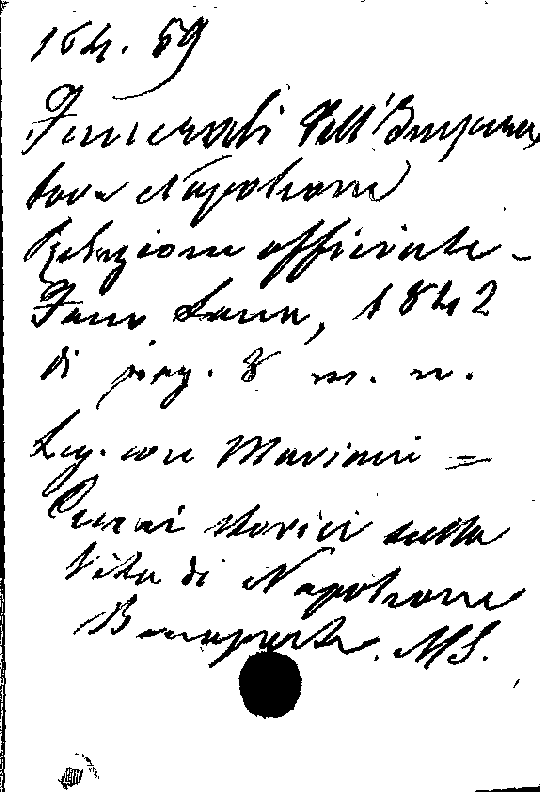 164. 69
Funerali dell'Impera
tore Napoleone
Relazione officiale -
Fano Lana, 1842
di pag. 8 m. n.
Leg. con Mariani =
Cenni storici sulla
Vita di Napoleone
Bonaparte. MS.